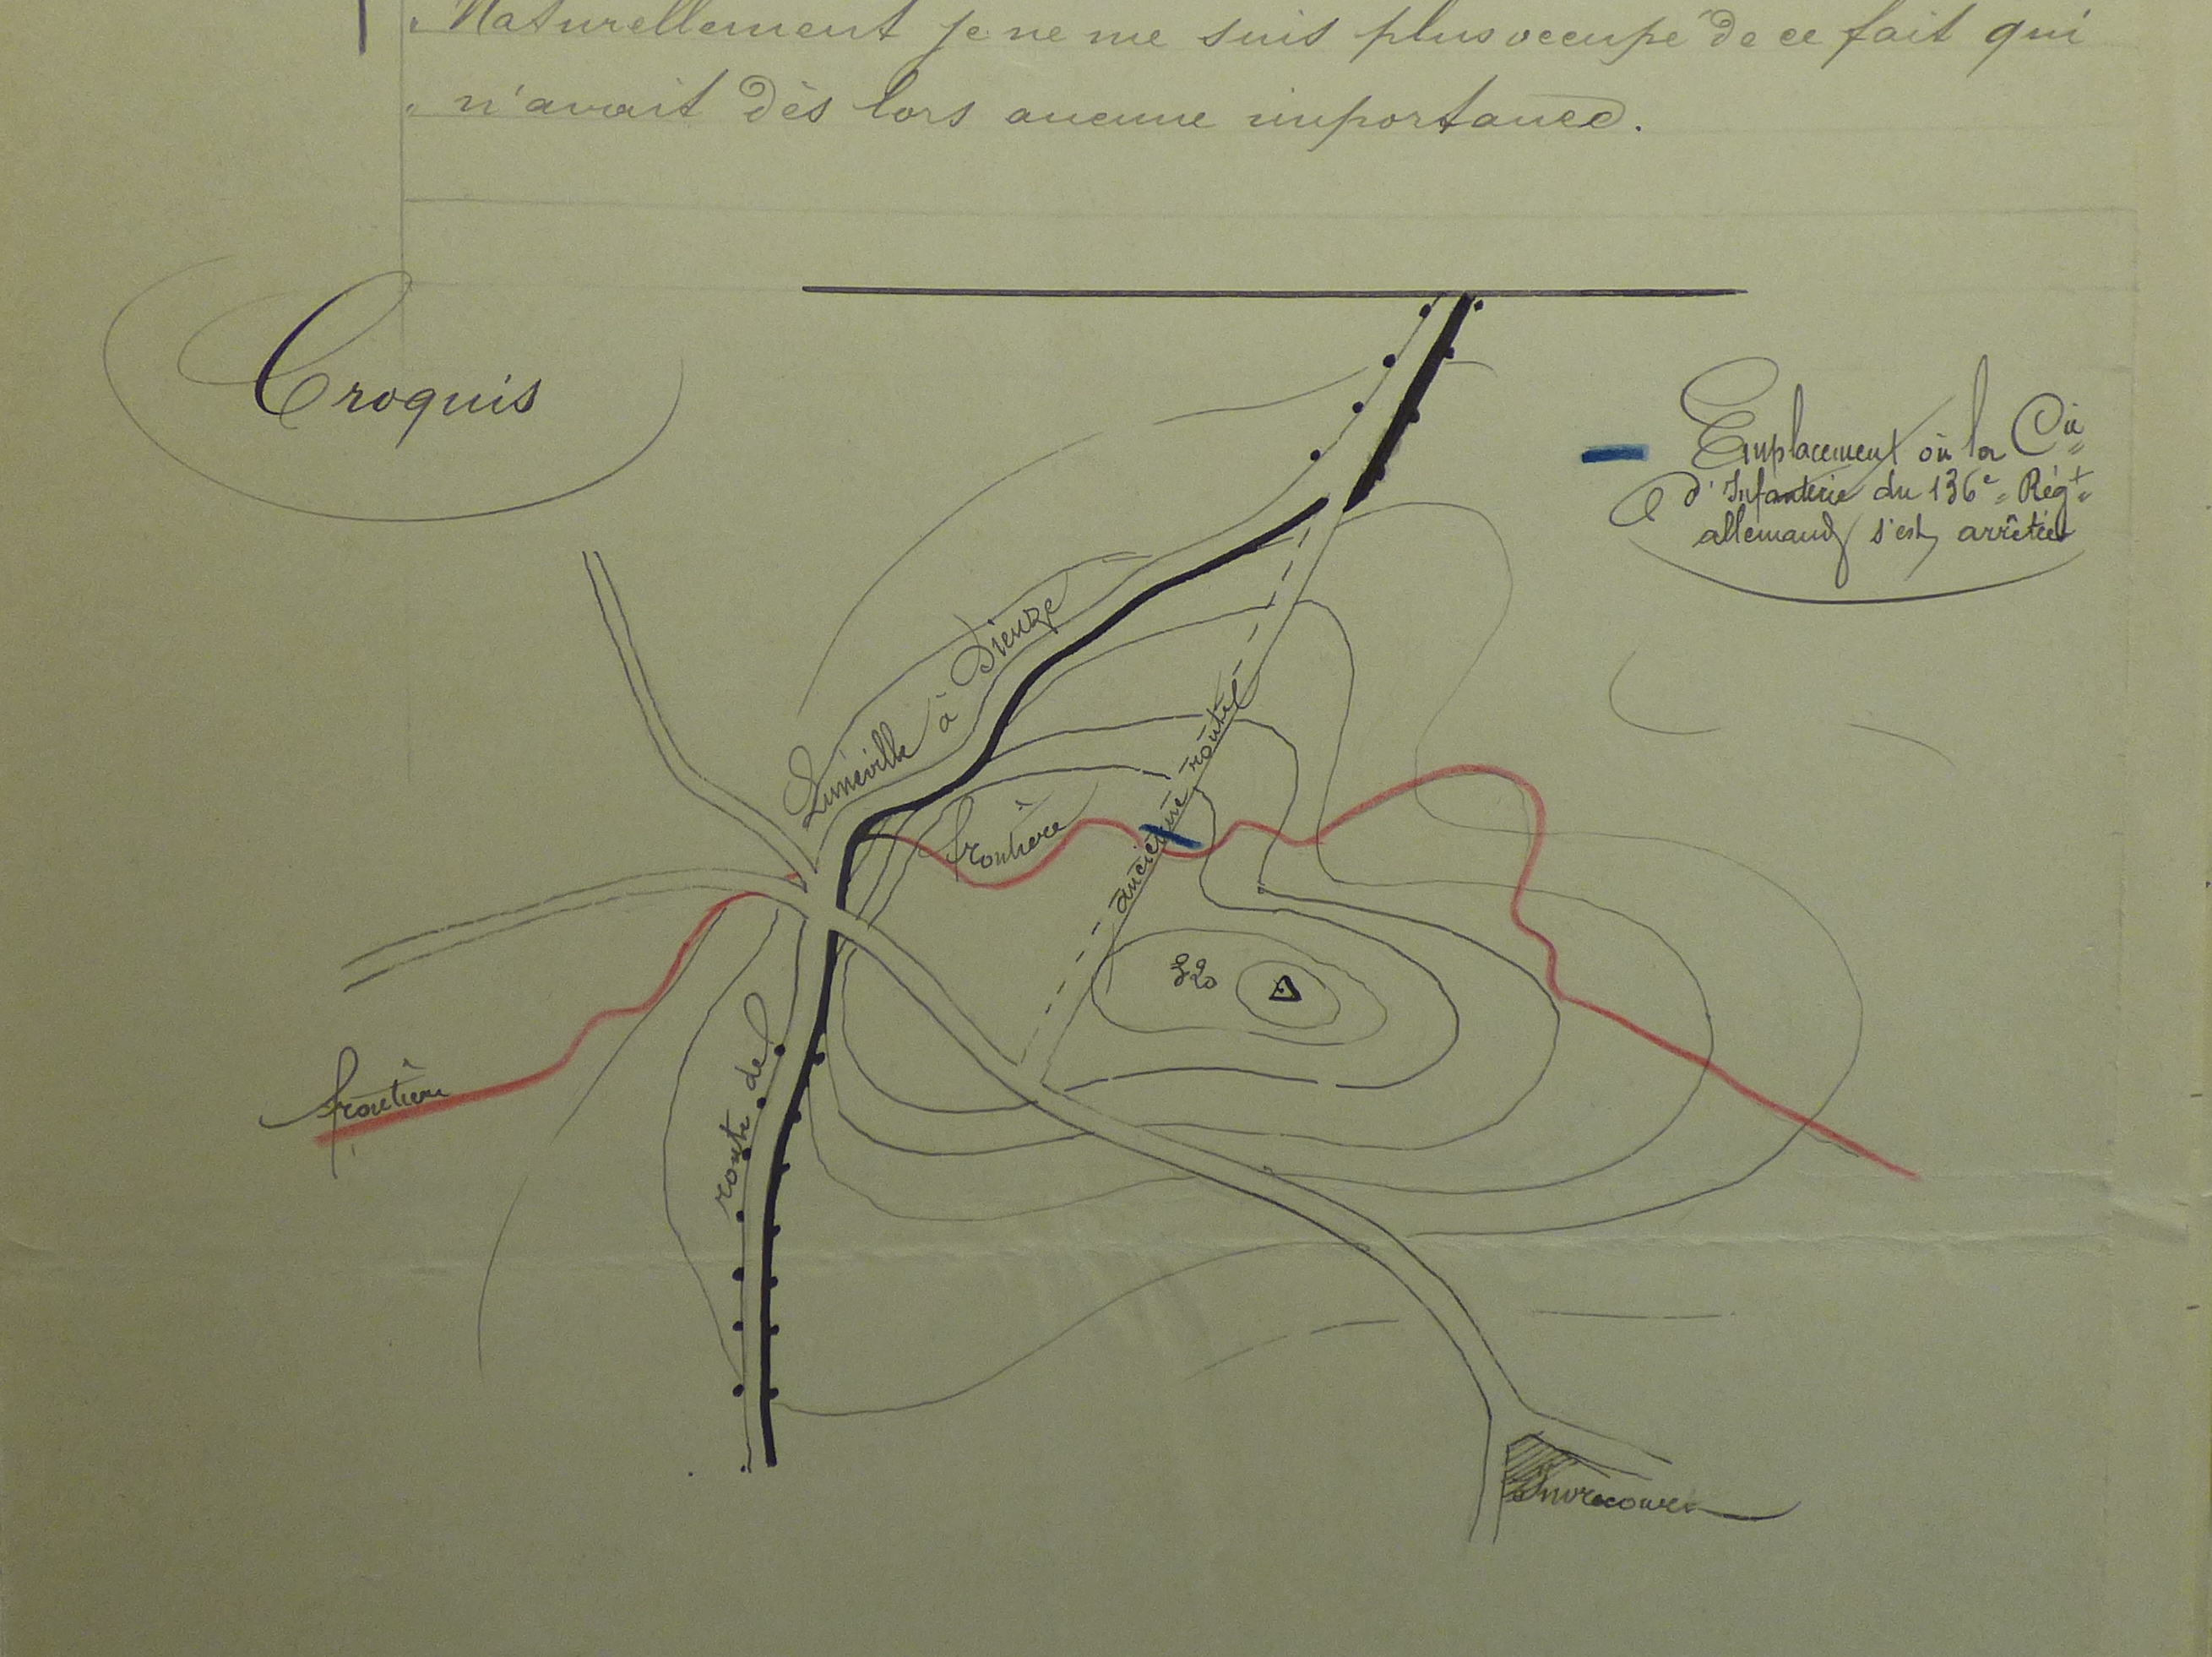 „ Naturellement je ne me suis plus occupé de ce fait qui
„ n'avait dès lors aucune importance.
Croquis
Emplacement où la Cie
d'Infanterie du 136e Régt
allemand s'est arrêtée
Lunéville à Dieuze
ancienne route
frontière
route de
frontière